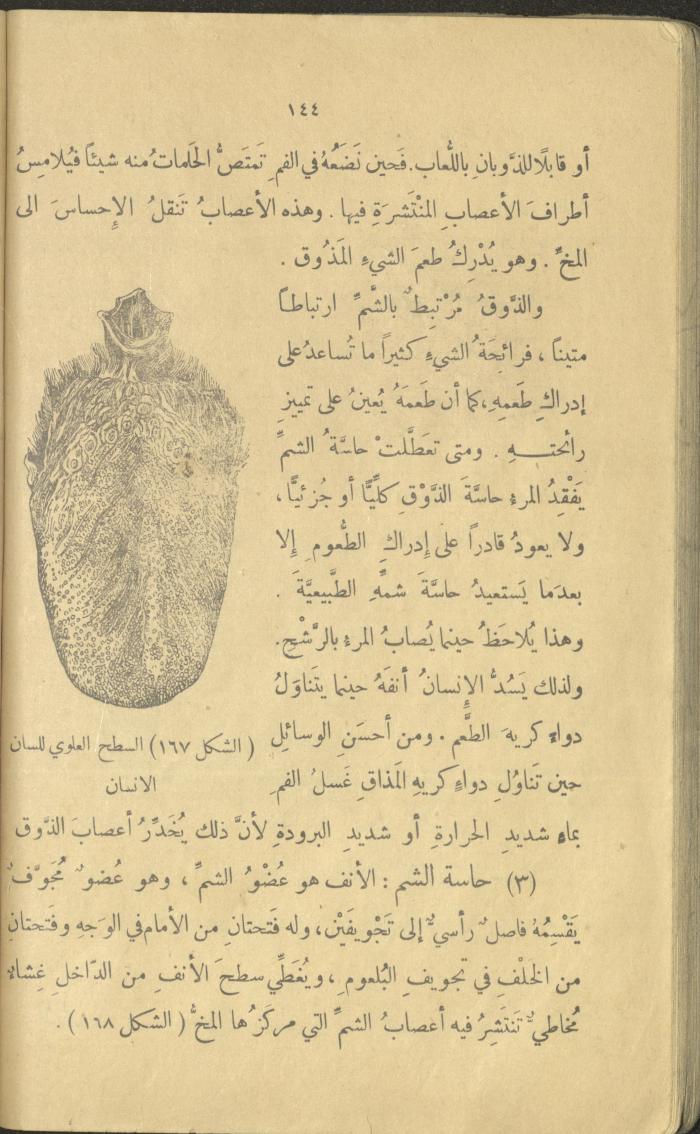 ١٤٤
أو قابلًا للذَّوبانِ باللُّعاب. فَحين نَضَعُهُ في الفمِ تَمتَصُّ الحَلمات ُمنه شيئًا فيُلامِسُ
أطرافَ الأعصابِ المنْتَشرَةِ فيها . وهذه الأعصابُ تَنقلُ الإِحساسَ الى
المخِّ . وهو يُدْرِكُ طعمَ الشيءِ المَذُوق .
والذَّوقُ مُرْتبِطٌ بالشَّمِّ ارتباطاً
متيناً ، فرائِحَةُ الشيءِ كثيراً ما تُساعدُ على
إدراكِ طَعمِهِ، كما أن طَعمَهُ يُعينُ على تمييزِ
رائحتــهِ . ومتى تعَطَّلتْ حاسَّةُ الشمِّ
يَفْقِدُ المرءُ حاسَّةَ الذَّوْقِ كلِّيًّا أو جُزئيًّا ،
ولا يعودُ قادراً على إِدراكِ الطُّعومِ إِلا
بعدَما يَستعيدُ حاسَّةَ شمِّهِ الطَّبيعيَّةَ .
وهذا يُلاحَظُ حينما يُصابُ المرءُ بالرَّشْحِ.
ولذلك يَسُدُّ الإِنسانُ أنفَهُ حينما يتَناوَلُ
دواءً كريهَ الطَّعم . ومن أحسَنِ الوسائلِ
حين تَناوُلِ دواءٍ كريهِ المَذاقِ غَسلُ الفمِ
(الشكل ١٦٧) السطح العلوي للسان
الانسان
بماءٍ شديدِ الحرارةِ أو شديدِ البرودةِ لأنَّ ذلك يُخَدِّرُ أعصابَ الذَّوق
(٣) حاسة الشم : الأنف هو عُضْوُ الشمِّ ، وهو عُضوٌ مُجَوَّفٌ
يَقْسِمُهُ فاصلٌ رأسيٌّ إلى تَجْويفَيْن، وله فَتحتانِ من الأمام في الوَجهِ وفَتحتانِ
من الخلْفِ في تجويفِ البُلعومِ ، ويُغَطِّي سطحَ الأنفِ من الدّاخلِ غِشاءٌ
مُخاطيٌّ تَنتَشِرُ فيه أعصابُ الشمِّ التي مركَزُها المخُّ ( الشكل ١٦٨ ) .